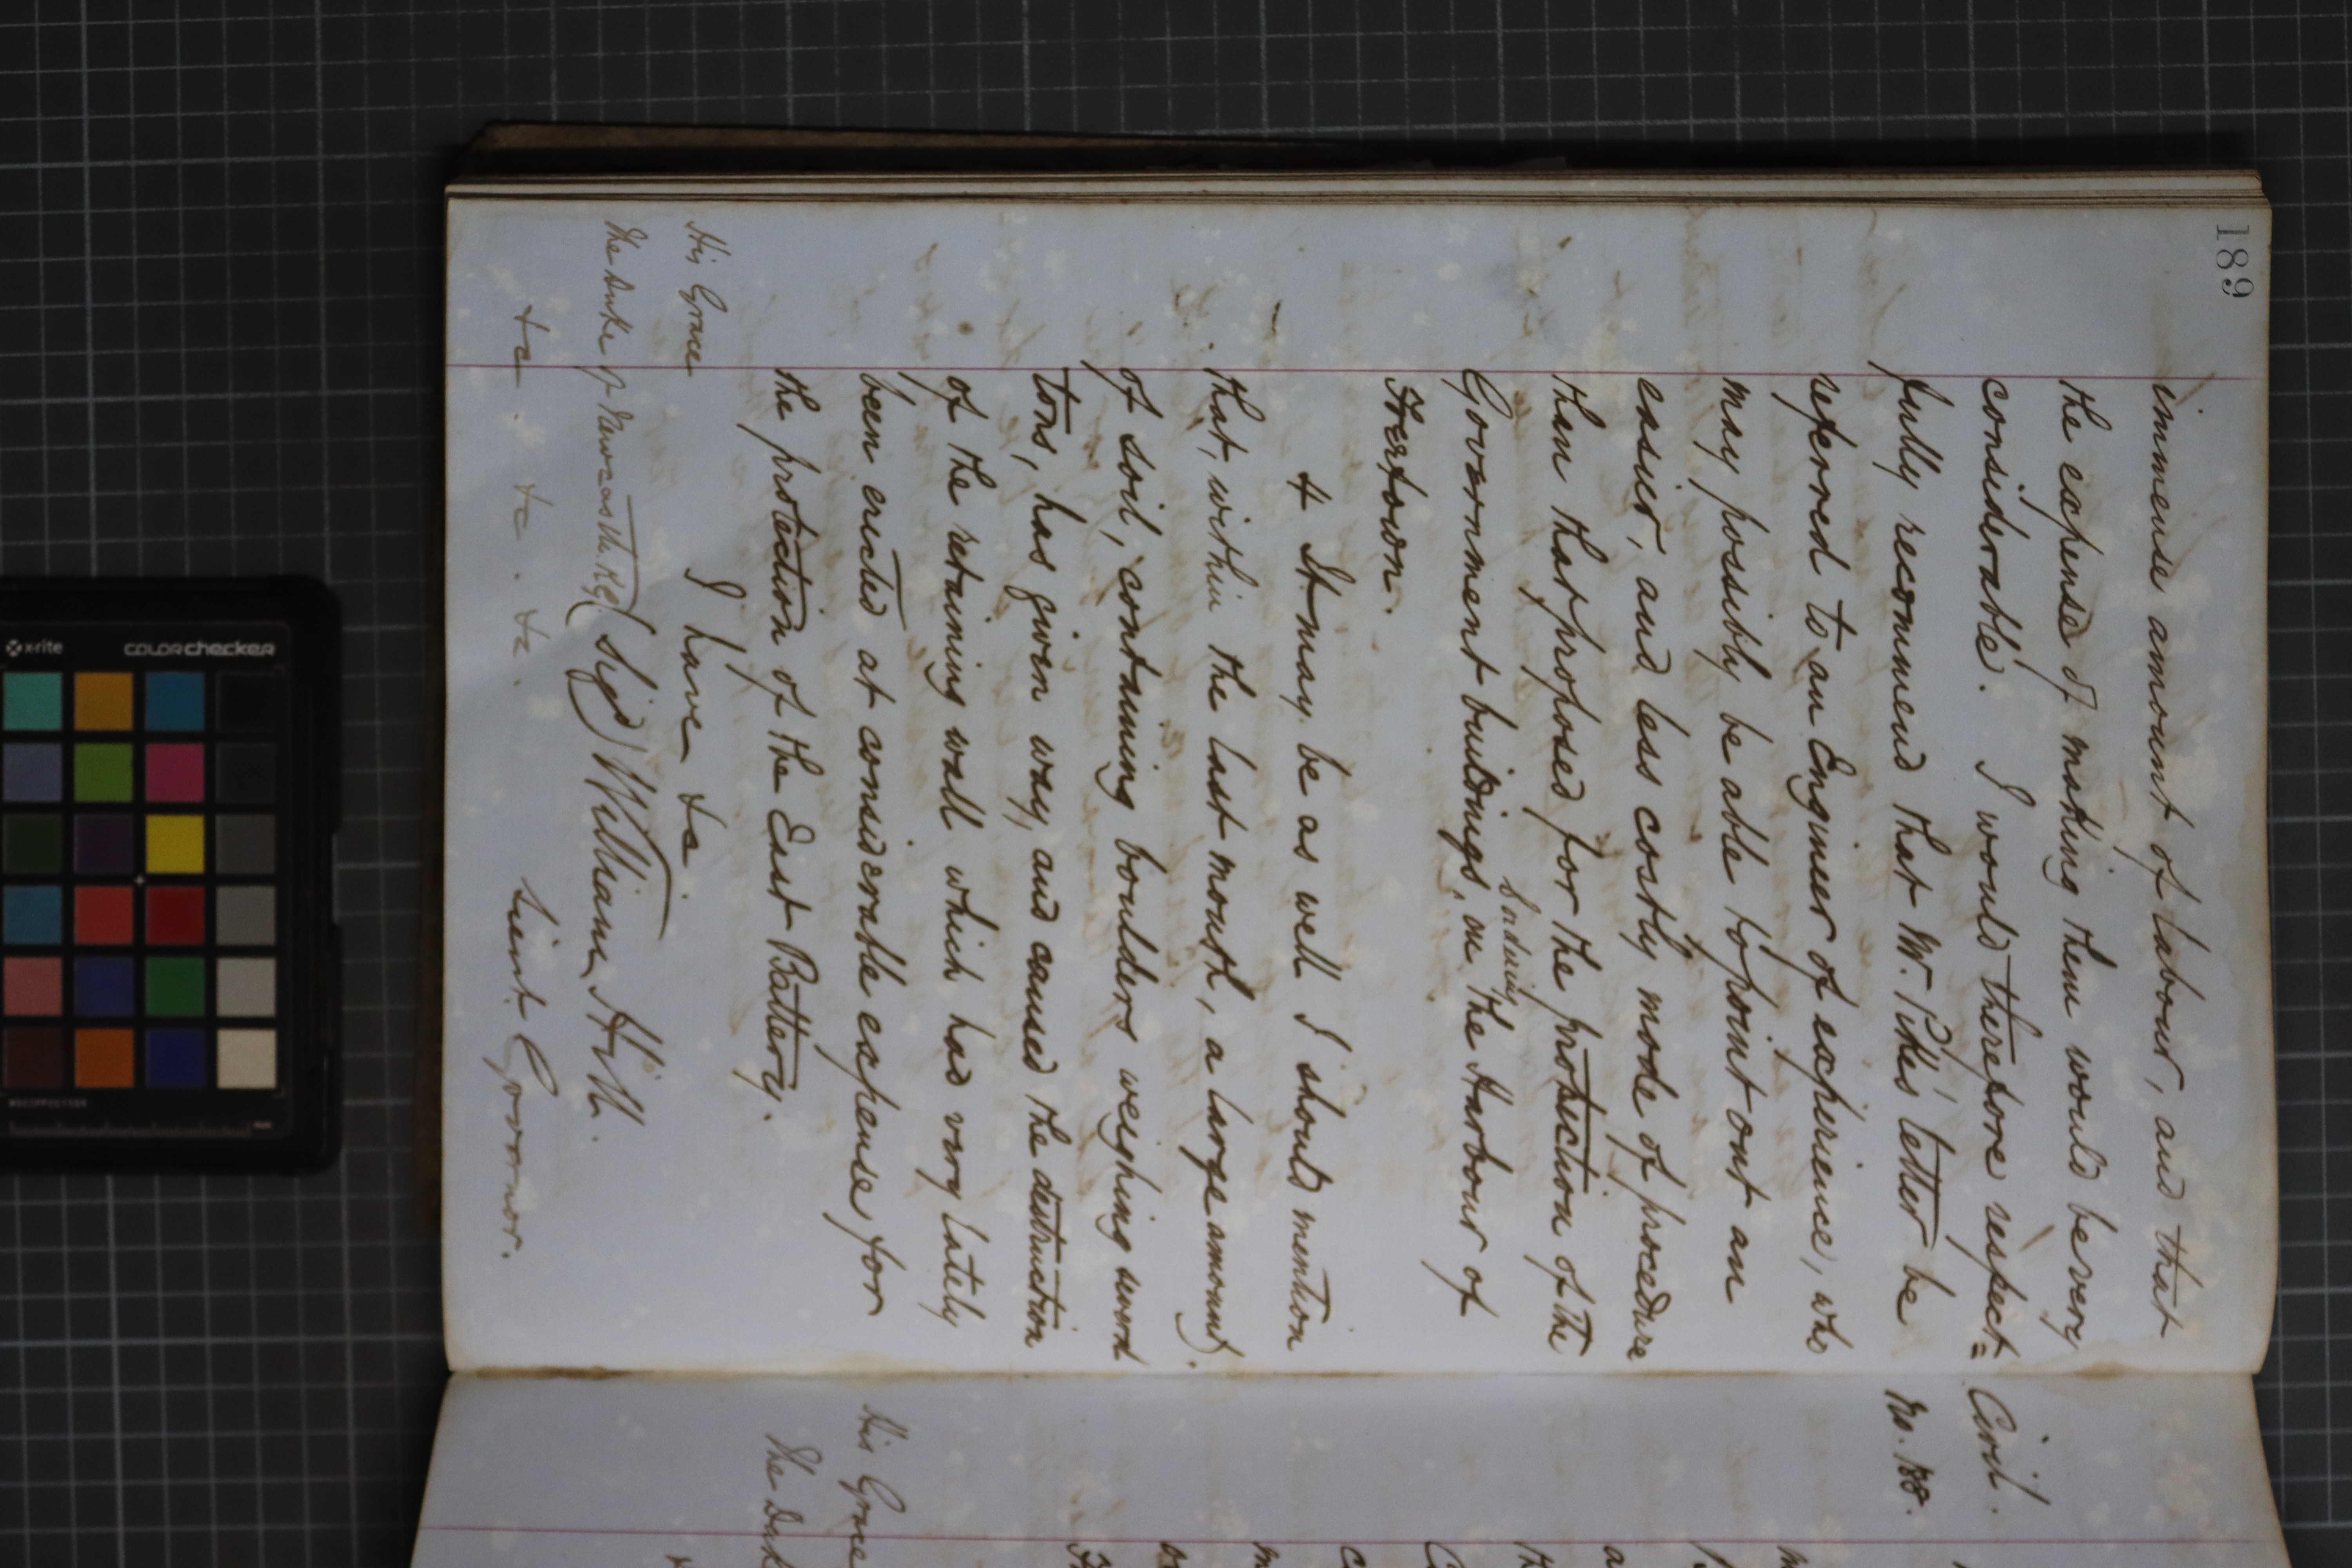 189
immense amount of labour, and that
the expense of making them would be very
considerable. I would therefore respect=
fully recommend that Mr. Pike's letter be
referred to an Engineer of experience, who
may possibly be able to point out an
easier, and less costly mode of procedure
than that proposed for the protection of the
Government buildings, in the Harbour of
Freetown.
4 It may be as well I should mention
that, within the last month, a large amount
of soil, containing boulders weighing several
tons, has given way, and caused the destruction
of the retaining wall which had very lately
been erected at considerable expense, for
the protection of the East Battery.
I have &c.
(Sigd) William Hill.
Lieut. Governor.
His Grace
The Duke of Newcastle K.G.
&c. &c. &c.
Civil.
No. 188.
His Grace
The Duk